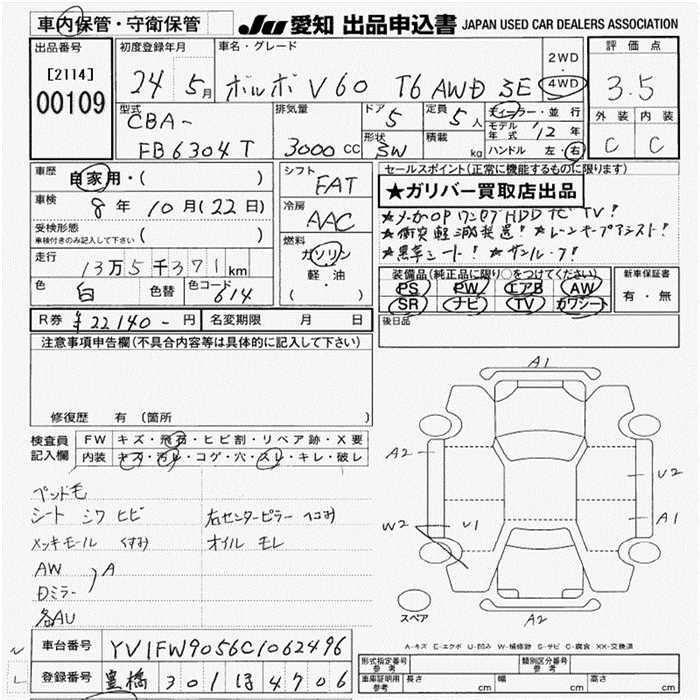 車内保管・守衛保管
JU 愛知 出品申込書 JAPAN USED CAR DEALERS ASSOCIATION
出品番号 [2114] 00109
初度登録年月 24 5月
車名・グレード ボルボ V60 T6 AWD SE
2WD・4WD
評価点 3.5
外装 C 内装 C
型式 CBA- FB6304T
排気量 3000 cc
ドア 5 定員 5人
形状 SW 積載 kg
ディーラー・並行
モデル年式 '12年
ハンドル 左・右
車歴 自家用・( )
車検 8年10月(22日)
受検形態
車検付きのみ記入して下さい ( )
走行 13万5千371km
色 白 色替 色コード 614
シフト FAT
冷房 AAC
燃料 ガソリン 軽油 ( )
セールスポイント(正常に機能するものに限ります)
★ガリバー買取店出品
★メーカOPワンセグHDDナビTV!
★衝突軽減装置! ★レーンキープアシスト!
★黒革シート! ★サンルーフ!
装備品(純正品に限り○をつけてください)
PS PW エアB AW
SR ナビ TV カワシート
新車保証書 有・無
後日品
R券 ¥22140- 円 名変期限 月 日
注意事項申告欄(不具合内容等は具体的に記入して下さい)
修復歴 有 (箇所
検査員記入欄
FW キズ・飛石・ヒビ割・リペア跡・X要
内装 キズ・汚レ・コゲ・穴・スレ・キレ・破レ
ペット毛
シート シワ ヒビ 右センターピラー ヘコミ
メッキモール くすみ オイル モレ
AW
Dミラー ) A
各AU
A1
A2
U2
A1
W2
U1
スペア
A2
A-キズ E-エクボ U-凹み W-補修跡 S-サビ C-腐食 XX-交換済
車台番号 YV1FW9056C1062496
登録番号 豊橋 301 ほ 4706
形式指定番号 参考 類別区分番号 参考
車庫証明用 参考 長さ cm 幅 cm 高さ cm